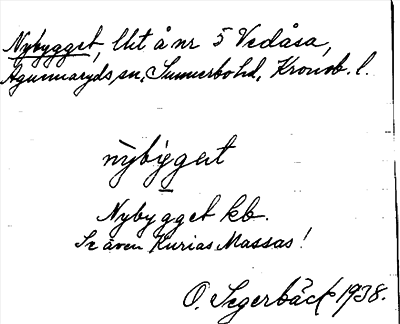 Nybygget, lht å nr 5 Vedåsa,
Agunnaryds sn, Sunnerbo hd, Kronob. l.
nỳbýgət
Nybygget kb.
Se även Kurias, Massas!
O. Segerbäck 1938.